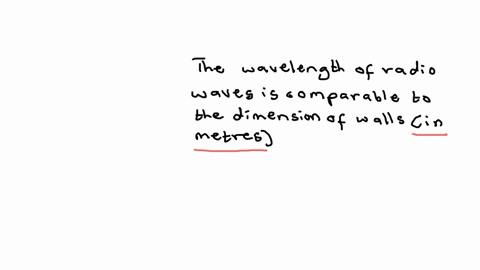 The wavelength of radio
waves is comparable to
the dimension of walls (in
metres)